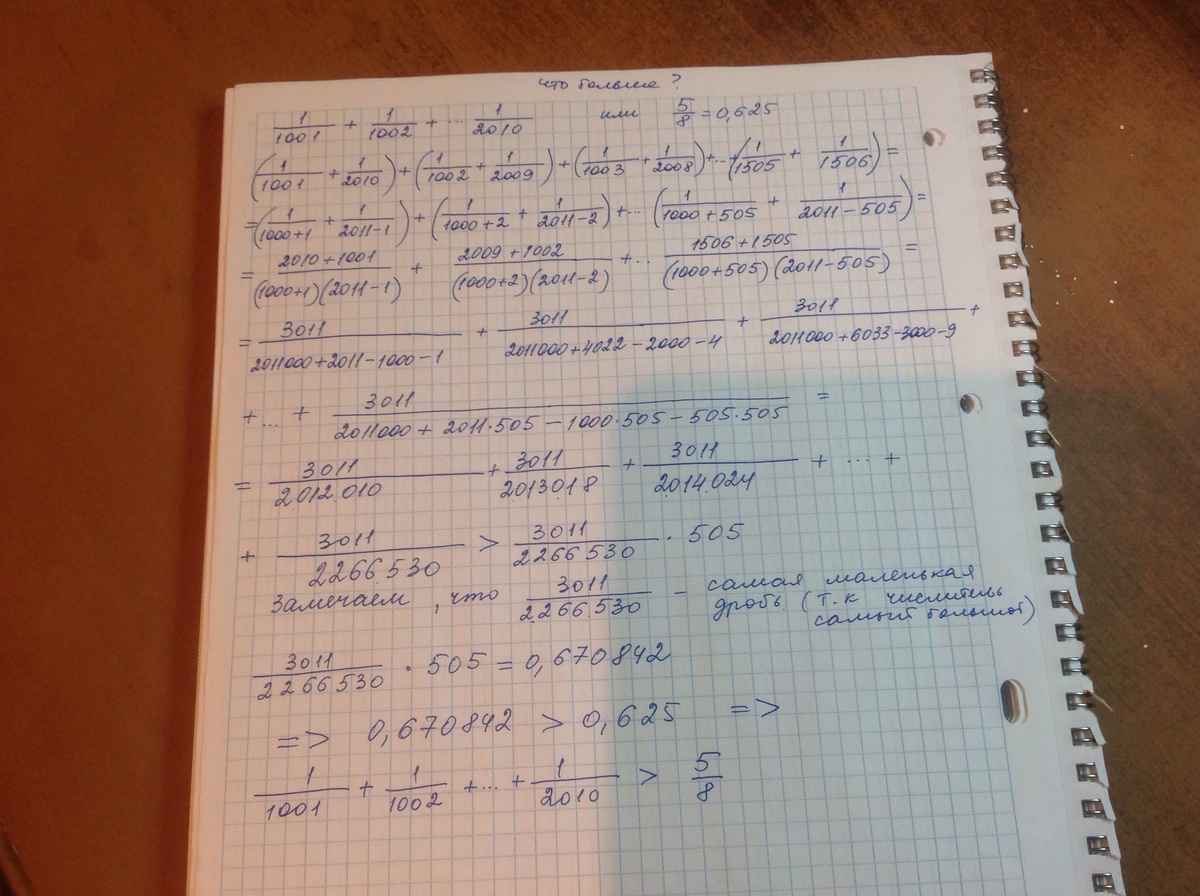 что больше?
1/1001 + 1/1002 + ... 1/2010 или 5/8 = 0,625
(1/1001 + 1/2010) + (1/1002 + 1/2009) + (1/1003 + 1/2008) + ... + (1/1505 + 1/1506) =
= (1/1000+1 + 1/2011-1) + (1/1000+2 + 1/2011-2) + ... (1/1000+505 + 1/2011-505) =
= 2010+1001/(1000+1)(2011-1) + 2009+1002/(1000+2)(2011-2) + ... 1506+1505/(1000+505)(2011-505) =
= 3011/2011000+2011-1000-1 + 3011/2011000+4022-2000-4 + 3011/2011000+6033-3000-9 +
+ ... + 3011/2011000+2011·505-1000·505-505·505 =
= 3011/2012010 + 3011/2013018 + 3011/2014024 + ... +
+ 3011/2266530 > 3011/2266530 · 505
Замечаем, что 3011/2266530 - самая маленькая
дробь (т.к числитель
самый большой)
3011/2266530 · 505 = 0,670842
=> 0,670842 > 0,625 =>
1/1001 + 1/1002 + ... + 1/2010 > 5/8